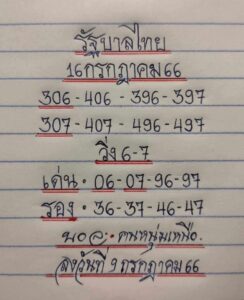 รัฐบาลไทย
16 กรกฎาคม 66
306-406-396-397
307-407-496-497
วิ่ง 6-7
เด่น · 06-07-96-97
รอง · 36-37-46-47
บอล · ฅนหนุ่มเหนือ.
ลงวันที่ 9 กรกฎาคม 66